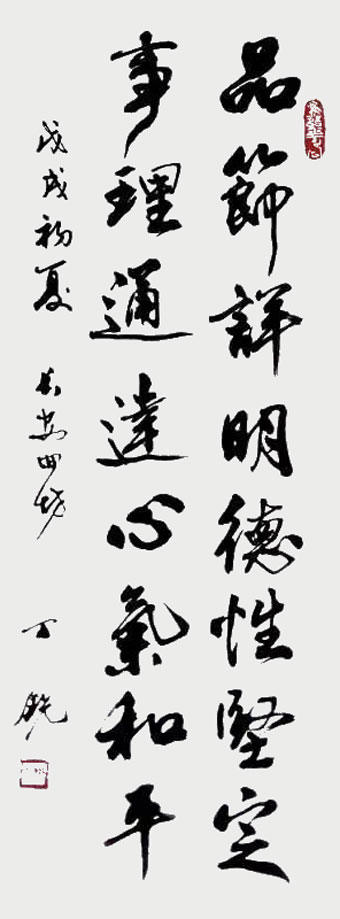 品節詳明德性堅定
事理通達心氣和平
戊戌初夏 長安田坊
丁